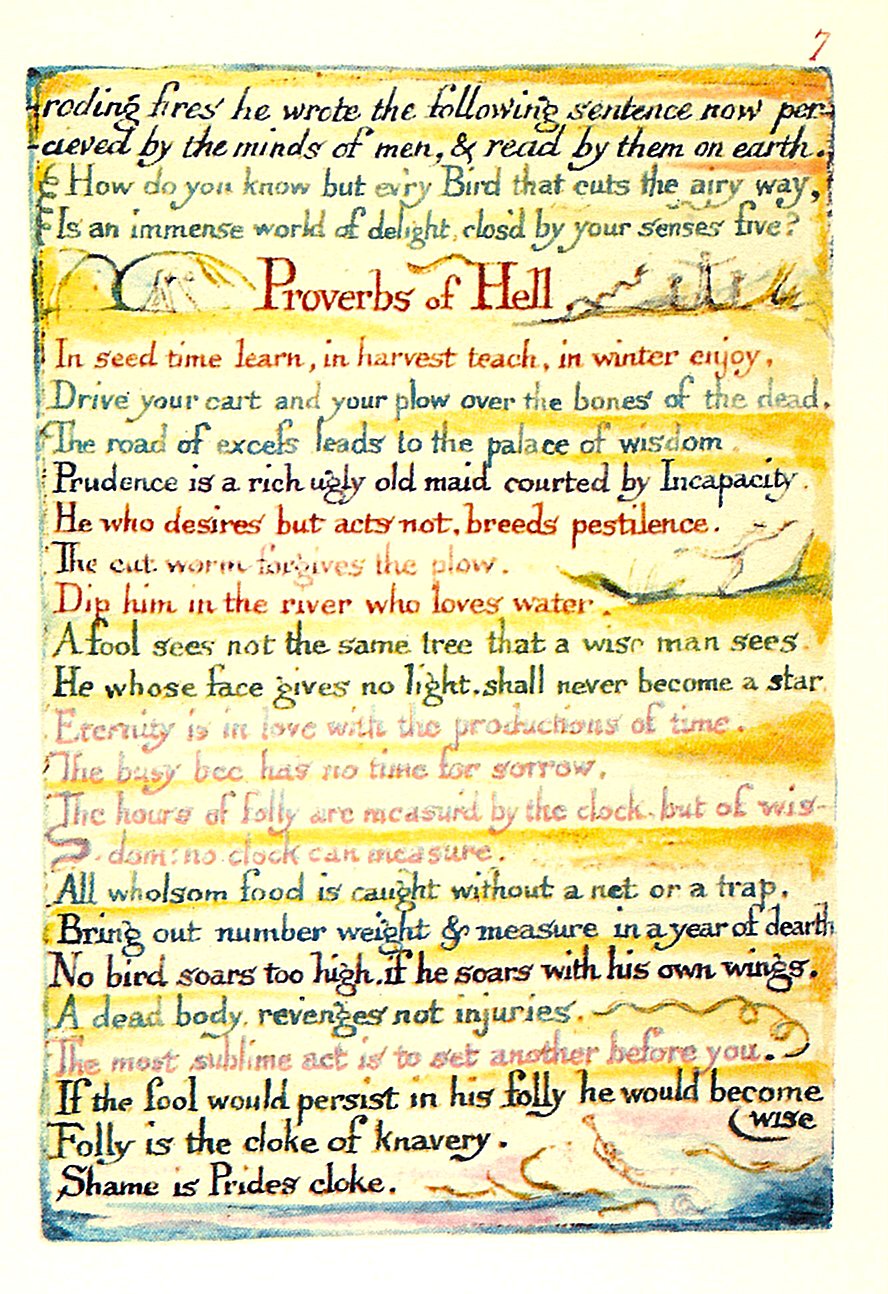 7
roding fires he wrote the following sentence now per-
-cieved by the minds of men, & read by them on earth.
How do you know but ev'ry Bird that cuts the airy way,
Is an immense world of delight, clos'd by your senses five?
Proverbs of Hell.
In seed time learn, in harvest teach, in winter enjoy.
Drive your cart and your plow over the bones of the dead.
The road of excess leads to the palace of wisdom.
Prudence is a rich ugly old maid courted by Incapacity.
He who desires but acts not, breeds pestilence.
The cut worm forgives the plow.
Dip him in the river who loves water.
A fool sees not the same tree that a wise man sees.
He whose face gives no light, shall never become a star.
Eternity is in love with the productions of time.
The busy bee has no time for sorrow.
The hours of folly are measur'd by the clock, but of wis-
-dom: no clock can measure.
All wholsom food is caught without a net or a trap.
Bring out number weight & measure in a year of dearth
No bird soars too high, if he soars with his own wings.
A dead body, revenges not injuries.
The most sublime act is to set another before you.
If the fool would persist in his folly he would become
(wise
Folly is the cloke of knavery.
Shame is Prides cloke.